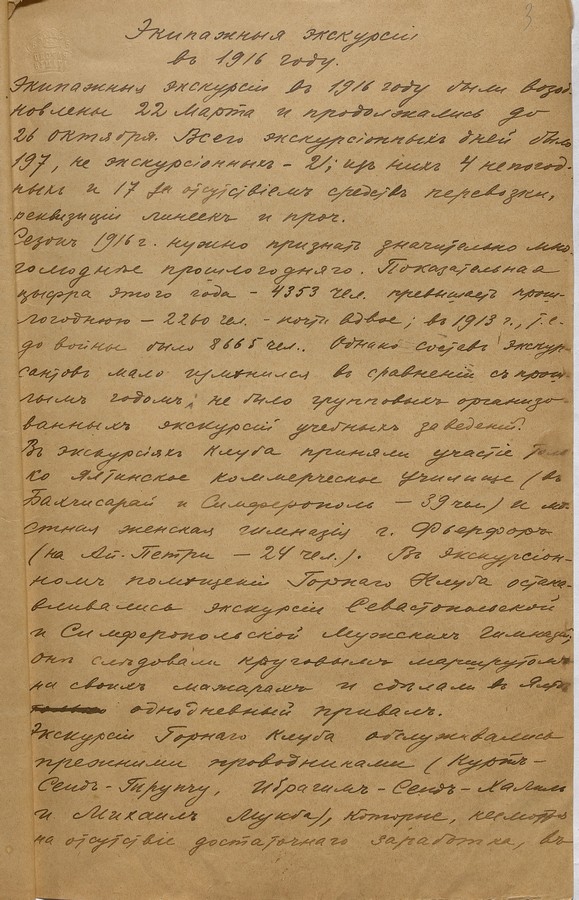 3
Экипажныя экскурсіи
въ 1916 году.
Экипажныя экскурсіи въ 1916 году были возоб-
новлены 22 марта и продолжались до
26 октября. Всего экскурсіонныхъ дней было
197, не экскурсіонныхъ – 21; изъ нихъ 4 непогод-
ныхъ и 17 за отсутствіемъ средствъ перевозки,
реквизиціи линеек и проч.
Сезонъ 1916 г. нужно признать значительно мно-
голюднѣе прошлогодняго. Показательная
цыфра этого года – 4353 чел. превышаетъ прош-
логоднюю – 2260 чел. – почти вдвое; въ 1913 г., т.е.
до войны было 8665 чел.. Однако составъ экскур-
сантовъ мало измѣнился въ сравненіи съ прош-
лымъ годомъ, не было групповыхъ организо-
ванныхъ экскурсій учебныхъ заведеній.
Въ экскурсіяхъ Клуба приняли участіе толь
ко Ялтинское коммерческое училище (въ
Бахчисарай и Симферополь – 39 чел.) и мѣ
стная женская гимназія г. Фьерфоръ
(на Ай-Петри – 24 чел.). Въ экскурсіон-
номъ помѣщеніи Горнаго Клуба остана-
вливались экскурсіи Севастопольской
и Симферопольской Мужскихъ гимназій,
онѣ слѣдовали круговымъ маршрутомъ
на своихъ мажарахъ и сдѣлали въ Ялтѣ
только однодневный привалъ.
Экскурсіи Горнаго Клуба обслуживались
прежними проводниками (Куртъ-
Сеидъ-, Ибрагимъ-Сеидъ-Халиль
и Михаилъ), которые, несмотря
на отсутствіе достаточнаго заработка, въ